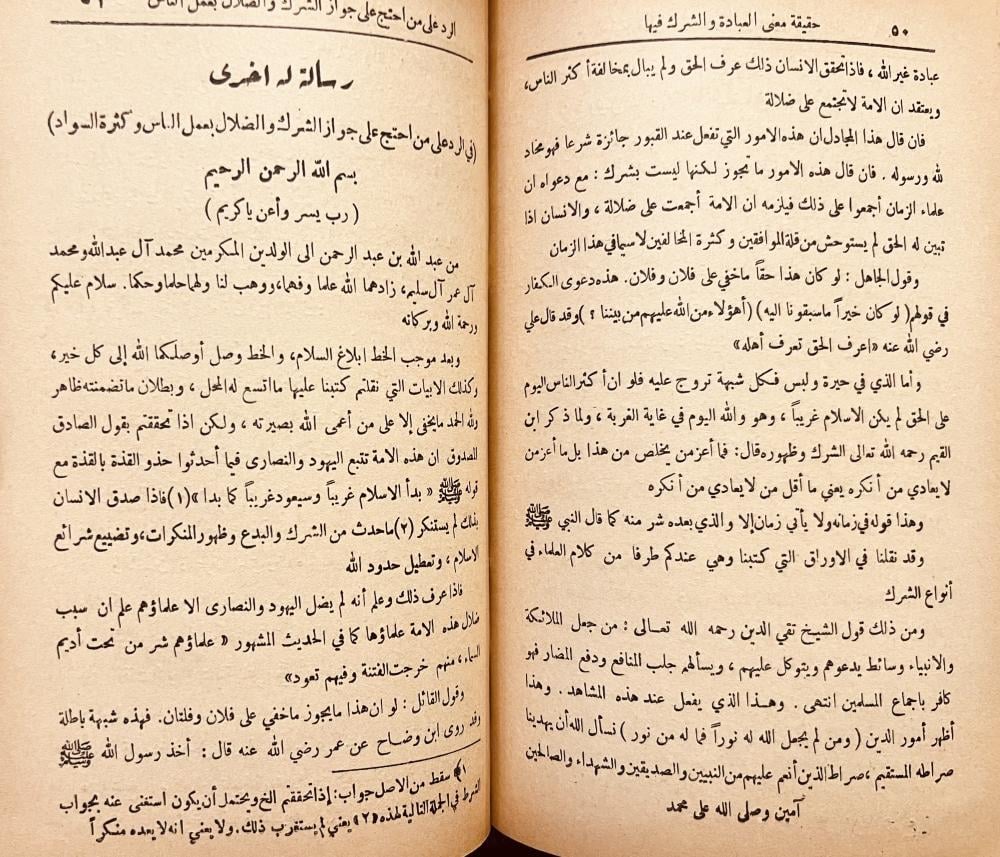 ٥٠
حقيقة معنى العبادة والشرك فيها
عبادة غير الله ، فاذا تحقق الانسان ذلك عرف الحق ولم يبال بمخالفة أكثر الناس،
ويعتقد ان الامة لا تجتمع على ضلالة
فان قال هذا المجادل ان هذه الامور التي تفعل عند القبور جائزة شرعا فهو محاد
لله ورسوله . فان قال هذه الامور ما تجوز لكنها ليست بشرك : مع دعواه ان
علماء الزمان أجمعوا على ذلك فيلزمه ان الامة أجمعت على ضلالة ، والانسان اذا
تبين له الحق لم يستوحش من قلة الموافقين وكثرة المخالفين لاسيما في هذا الزمان
وقول الجاهل : لو كان هذا حقاً ما خفي على فلان وفلان. هذه دعوى الكفار
في قولهم ( لو كان خيراً ماسبقونا اليه) (أهؤلاء من الله عليهم من بيننا ؟ )وقد قال علي
رضي الله عنه «اعرف الحق تعرف أهله»
وأما الذي في حيرة ولبس فكل شبهة تروج عليه فلو ان أكثر الناس اليوم
على الحق لم يكن الاسلام غريباً ، وهو والله اليوم في غاية الغربة ، ولما ذكر ابن
القيم رحمه الله تعالى الشرك وظهوره قال: فما أعز من يخلص من هذا بل ما أعز من
لا يعادي من أنكره يعني ما أقل من لا يعادي من أنكره
وهذا قوله في زمانه ولا يأتي زمان إلا والذي بعده شر منه كما قال النبي ﷺ
وقد نقلنا في الاوراق التي كتبنا وهي عندكم طرفا من كلام العلماء في
أنواع الشرك
ومن ذلك قول الشيخ تقي الدين رحمه الله تعالى : من جعل الملائكة
والانبياء وسائط يدعوهم ويتوكل عليهم ، ويسألهم جلب المنافع ودفع المضار فهو
كافر باجماع المسلمين انتهى . وهذا الذي يفعل عند هذه المشاهد . وهذا
أظهر أمور الدين ( ومن لم يجعل الله له نوراً فما له من نور ) نسأل الله أن يهدينا
صراطه المستقيم ، صراط الذين أنعم عليهم من النبيين والصديقين والشهداء والصالحين
آمين وصلى الله على محمد
الرد على من احتج على جواز الشرك والضلال بعمل الناس
رسالة له اخرى
(في الرد على من احتج على جواز الشرك والضلال بعمل الناس وكثرة السواد)
بسم الله الرحمن الرحيم
( رب يسر وأعن ياكريم )
من عبد الله بن عبد الرحمن الى الولدين المكرمين محمد آل عبدالله ومحمد
آل عمر آل سليم، زادهما الله علما وفهما، ووهب لنا ولهما حلما وحكما. سلام عليكم
ورحمة الله وبركاته
وبعد موجب الخط ابلاغ السلام، والخط وصل أوصلكما الله إلى كل خير،
وكذلك الابيات التي نقلتم كتبنا عليها ما اتسع له المحل ، وبطلان ما تضمنته ظاهر
ولله الحمد مايخفى إلا على من أعمى الله بصيرته ، ولكن اذا تحققتم بقول الصادق
المصدوق ان هذه الامة تتبع اليهود والنصارى فيما أحدثوا حذو القذة بالقذة مع
قوله ﷺ « بدأ الاسلام غريباً وسيعود غريباً كما بدا » (١) فاذا صدق الانسان
بذلك لم يستنكر (٢) ماحدث من الشرك والبدع وظهور المنكرات، وتضييع شرائع
الاسلام ، وتعطيل حدود الله
فاذا عرف ذلك وعلم أنه لم يضل اليهود والنصارى الا علماؤهم علم ان سبب
ضلال هذه الامة علماؤها كما في الحديث المشهور « علماؤهم شر من تحت أديم
السماء ، منهم خرجت الفتنة وفيهم تعود»
وقول القائل : لو ان هذا مايجوز ماخفي على فلان وفلتان. فهذه شبهة باطلة
وقد روى ابن وضاح عن عمر رضي الله عنه قال : أخذ رسول الله ﷺ
«١» سقط من الاصل جواب: إذا تحققتم الخ ويحتمل أن يكون استغنى عنه بجواب
الشرط في الجملة التالية لهذه «٢» يعني لم يستغرب ذلك. ولا يعني انه لا يعده منكراً